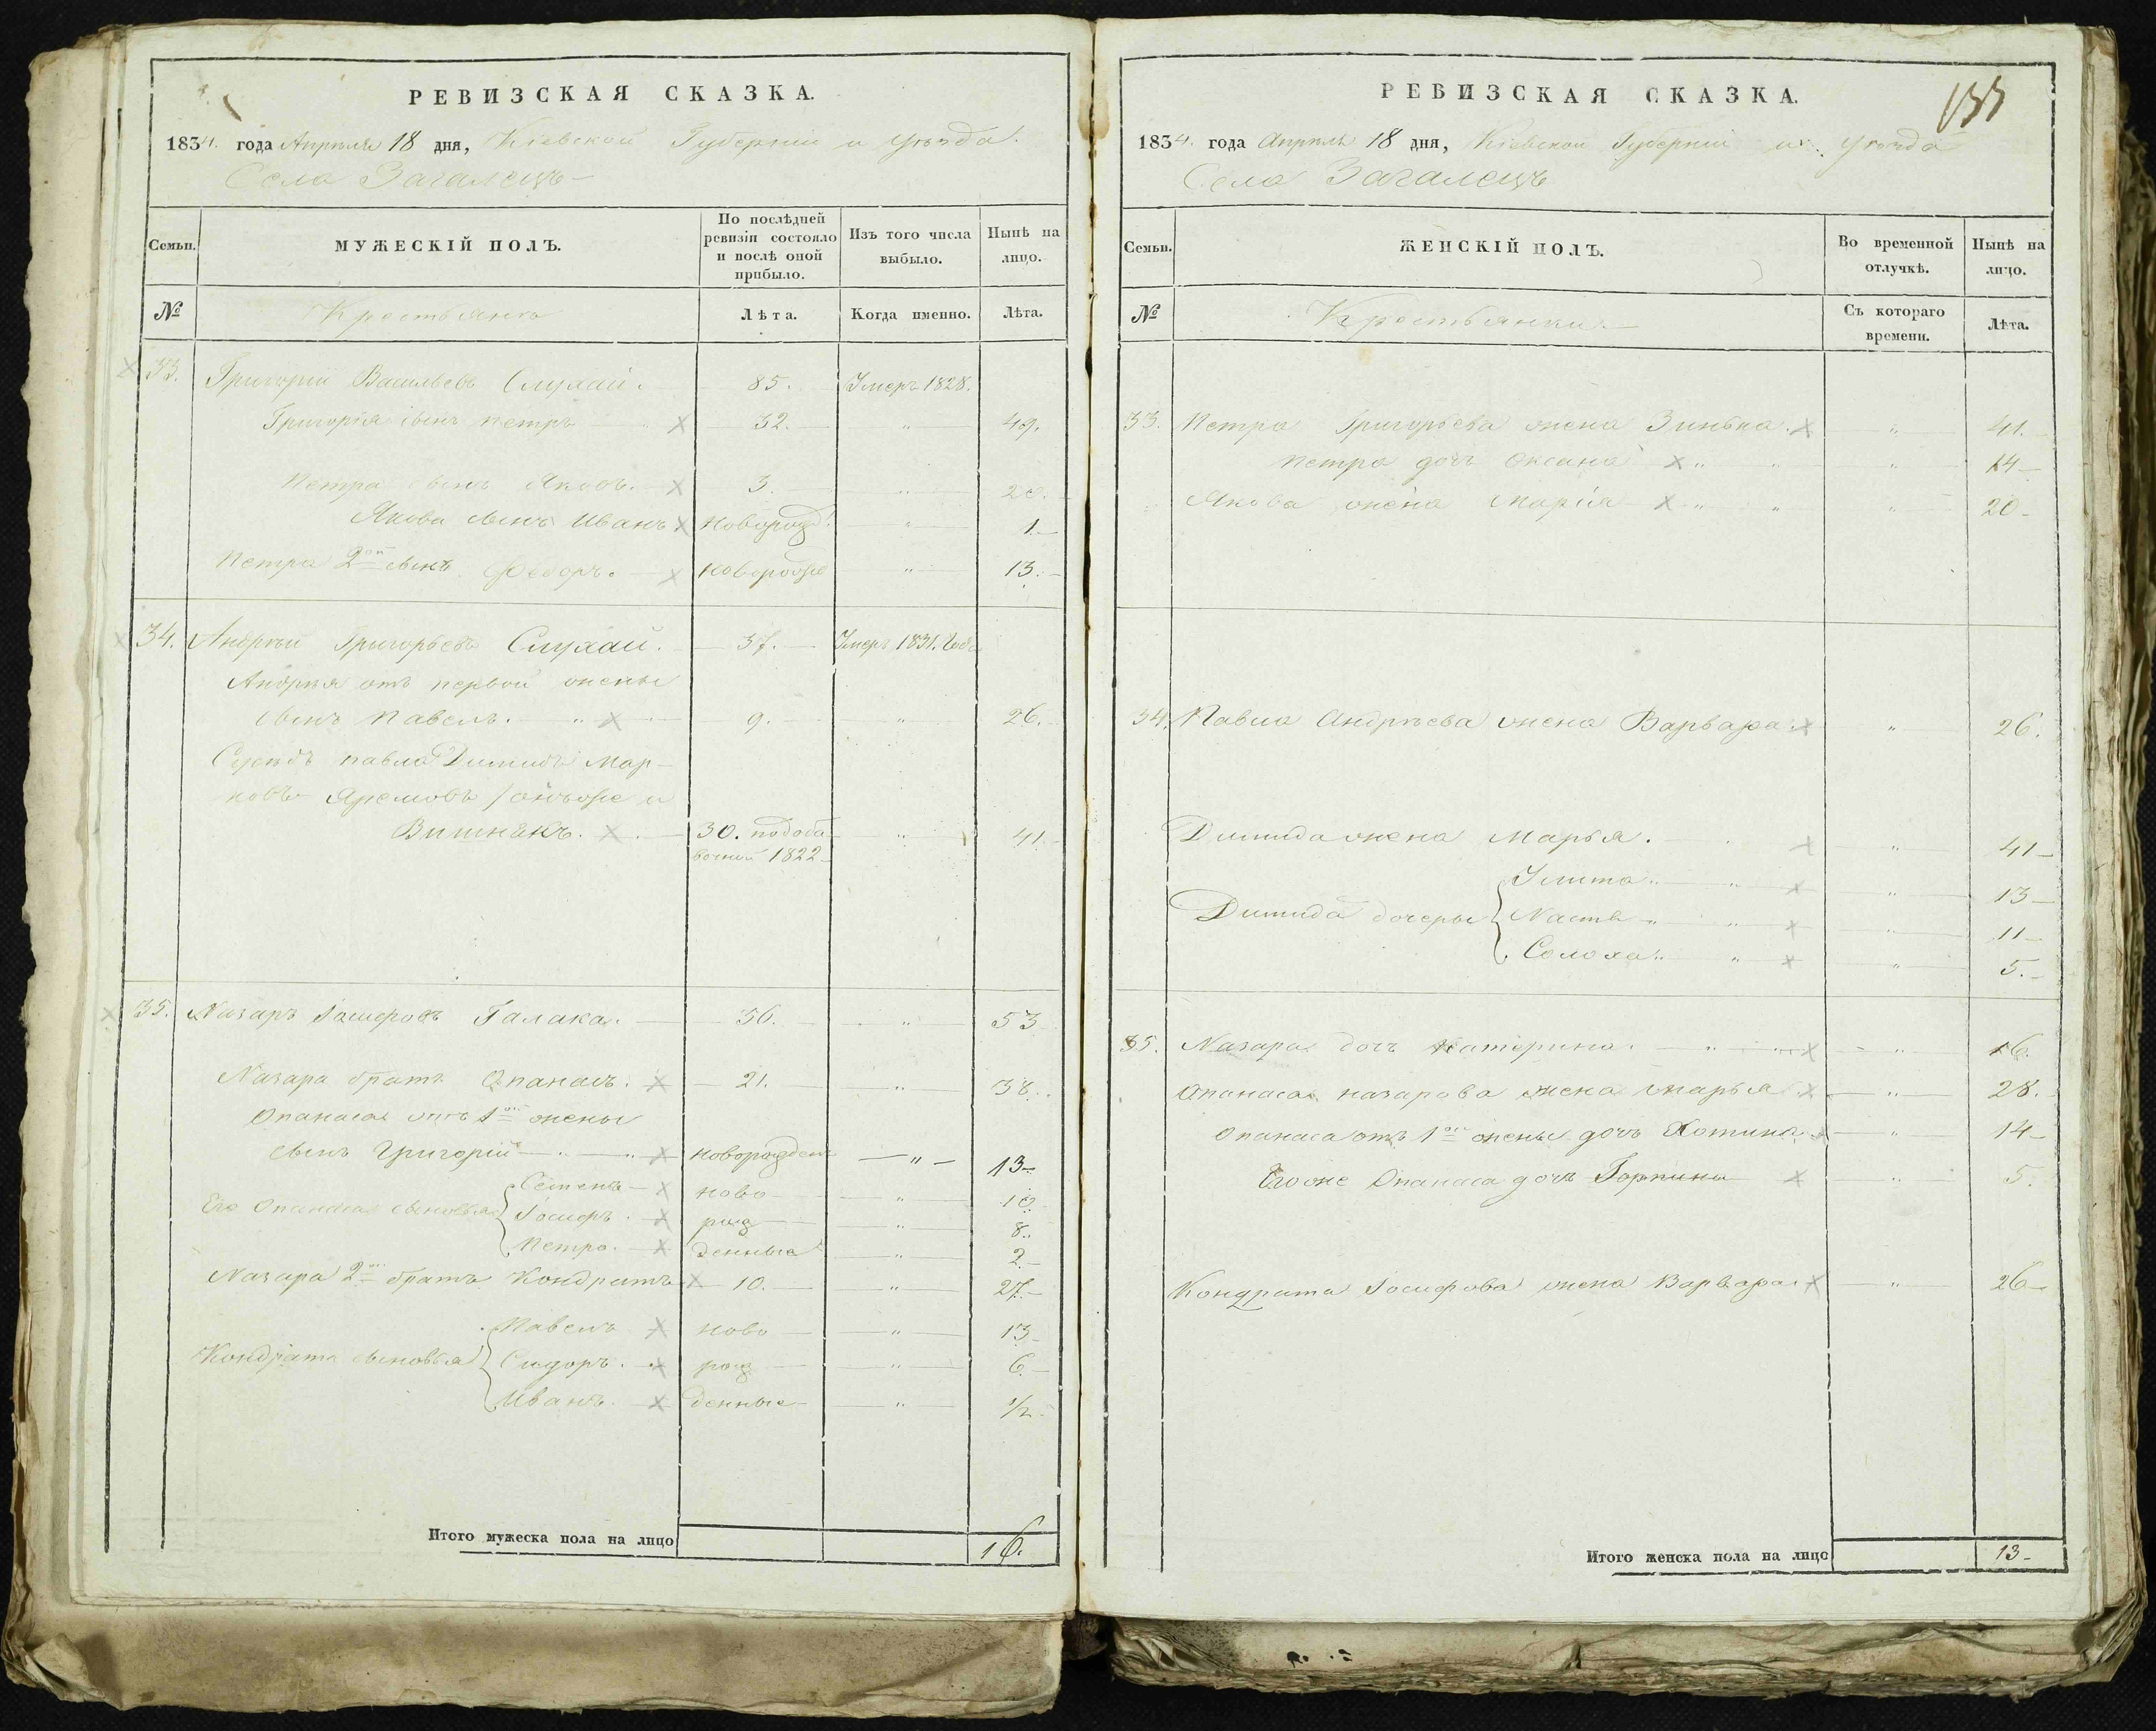 РЕВИЗСКАЯ СКАЗКА.
1834. года Апреля 18 дня, Кіевской Губерніи и уѣзда.
Села Загалецъ
Семьи.
МУЖЕСКІЙ ПОЛЪ.
По послѣдней ревизіи состояло и послѣ оной прибыло.
Изъ того числа выбыло.
Нынѣ на лицо.
№
Крестьянъ
Лѣта.
Когда именно.
Лѣта.
33. Григорій Васильевъ Слухай. 85. Умеръ 1828.
Григорія сынъ Петръ х 32. " 49.
Петра сынъ Яковъ. х 3. " 20.
Якова сынъ Иванъ х новорожд. " 1.
Петра 2ой сынъ Федоръ. х новорожде " 13.
34. Андрѣй Григорьевъ Слухай. 37. Умеръ 1831. Года
Андрѣя отъ первой жены
сынъ Павелъ. " х 9. " 26.
Сусѣдъ павла Димидъ Мар-
ковъ Яремовъ / онъ же и
Вишнякъ. х 30. по доба " 41.
вочной 1822
35. Назаръ Іосифовъ Галака. 36. " 53
Назара братъ Опанасъ. х 21. " 38.
Опанаса отъ 1ой жены
сынъ Григорій " " х новорожден " 13
Его Опанаса сыновья
Семенъ х ново " 10
Іосифъ. х рож " 8.
Петро. х денные " 2
Назара 2ой братъ Кондратъ х 10. " 27.
Кондрата сыновья
Павелъ х ново " 13
Сидоръ. х рож " 6
Иванъ. х денные " 1/2
Итого мужеска пола на лицо 16.
РЕВИЗСКАЯ СКАЗКА.
1834. года Апреля 18 дня, Кіевской Губерніи и уѣзда
Села Загалецъ
Семьи.
ЖЕНСКІЙ ПОЛЪ.
Во временной отлучкѣ.
Нынѣ на лицо.
№
Крестьянки.
Съ котораго времени.
Лѣта.
33. Петра Григорьева жена Зинька. х " 41.
Петра дочь Оксана х " " " 14
Якова жена Марія х " " " 20
34. Павла Андрѣева жена Варвара. х " 26.
Димида жена Марья. х " 41
Димида дочеры
Улита " " х " 13
Настя " " х " 11
Солоха " " х " 5.
35. Назара дочь Катерина. " " х " 16.
Опанаса назарова жена Марья х " 28.
Опанаса отъ 1ой жены дочь Хотина х " 14
Его же Опанаса дочь Горпина х " 5.
Кондрата Іосифова жена Варвара х " 26
Итого женска пола на лицо 13